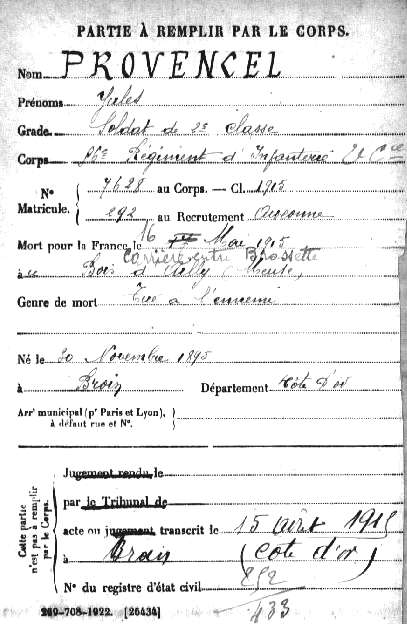 PARTIE À REMPLIR PAR LE CORPS.
Nom PROVENCEL
Prénoms Jules
Grade Soldat de 2e classe
Corps Régiment d'Infanterie Cie
N° Matricule. { 7628 au Corps. — Cl. 1915
292 au Recrutement Auxonne
Mort pour la France le 16 Mai 1915
Carrière entre Brossette
à Bois d'Ailly (Meuse)
Genre de mort Tué à l'ennemi
Né le 20 Novembre 1895
à Broin Département Côte d'or
Arrt municipal (pr Paris et Lyon), à défaut rue et N°.
Cette partie n'est pas à remplir par le Corps.
Jugement rendu le
par le Tribunal de
acte ou jugement transcrit le 15 août 1915
à Broin (Côte d'or)
N° du registre d'état civil
433
269-708-1922. [26434]